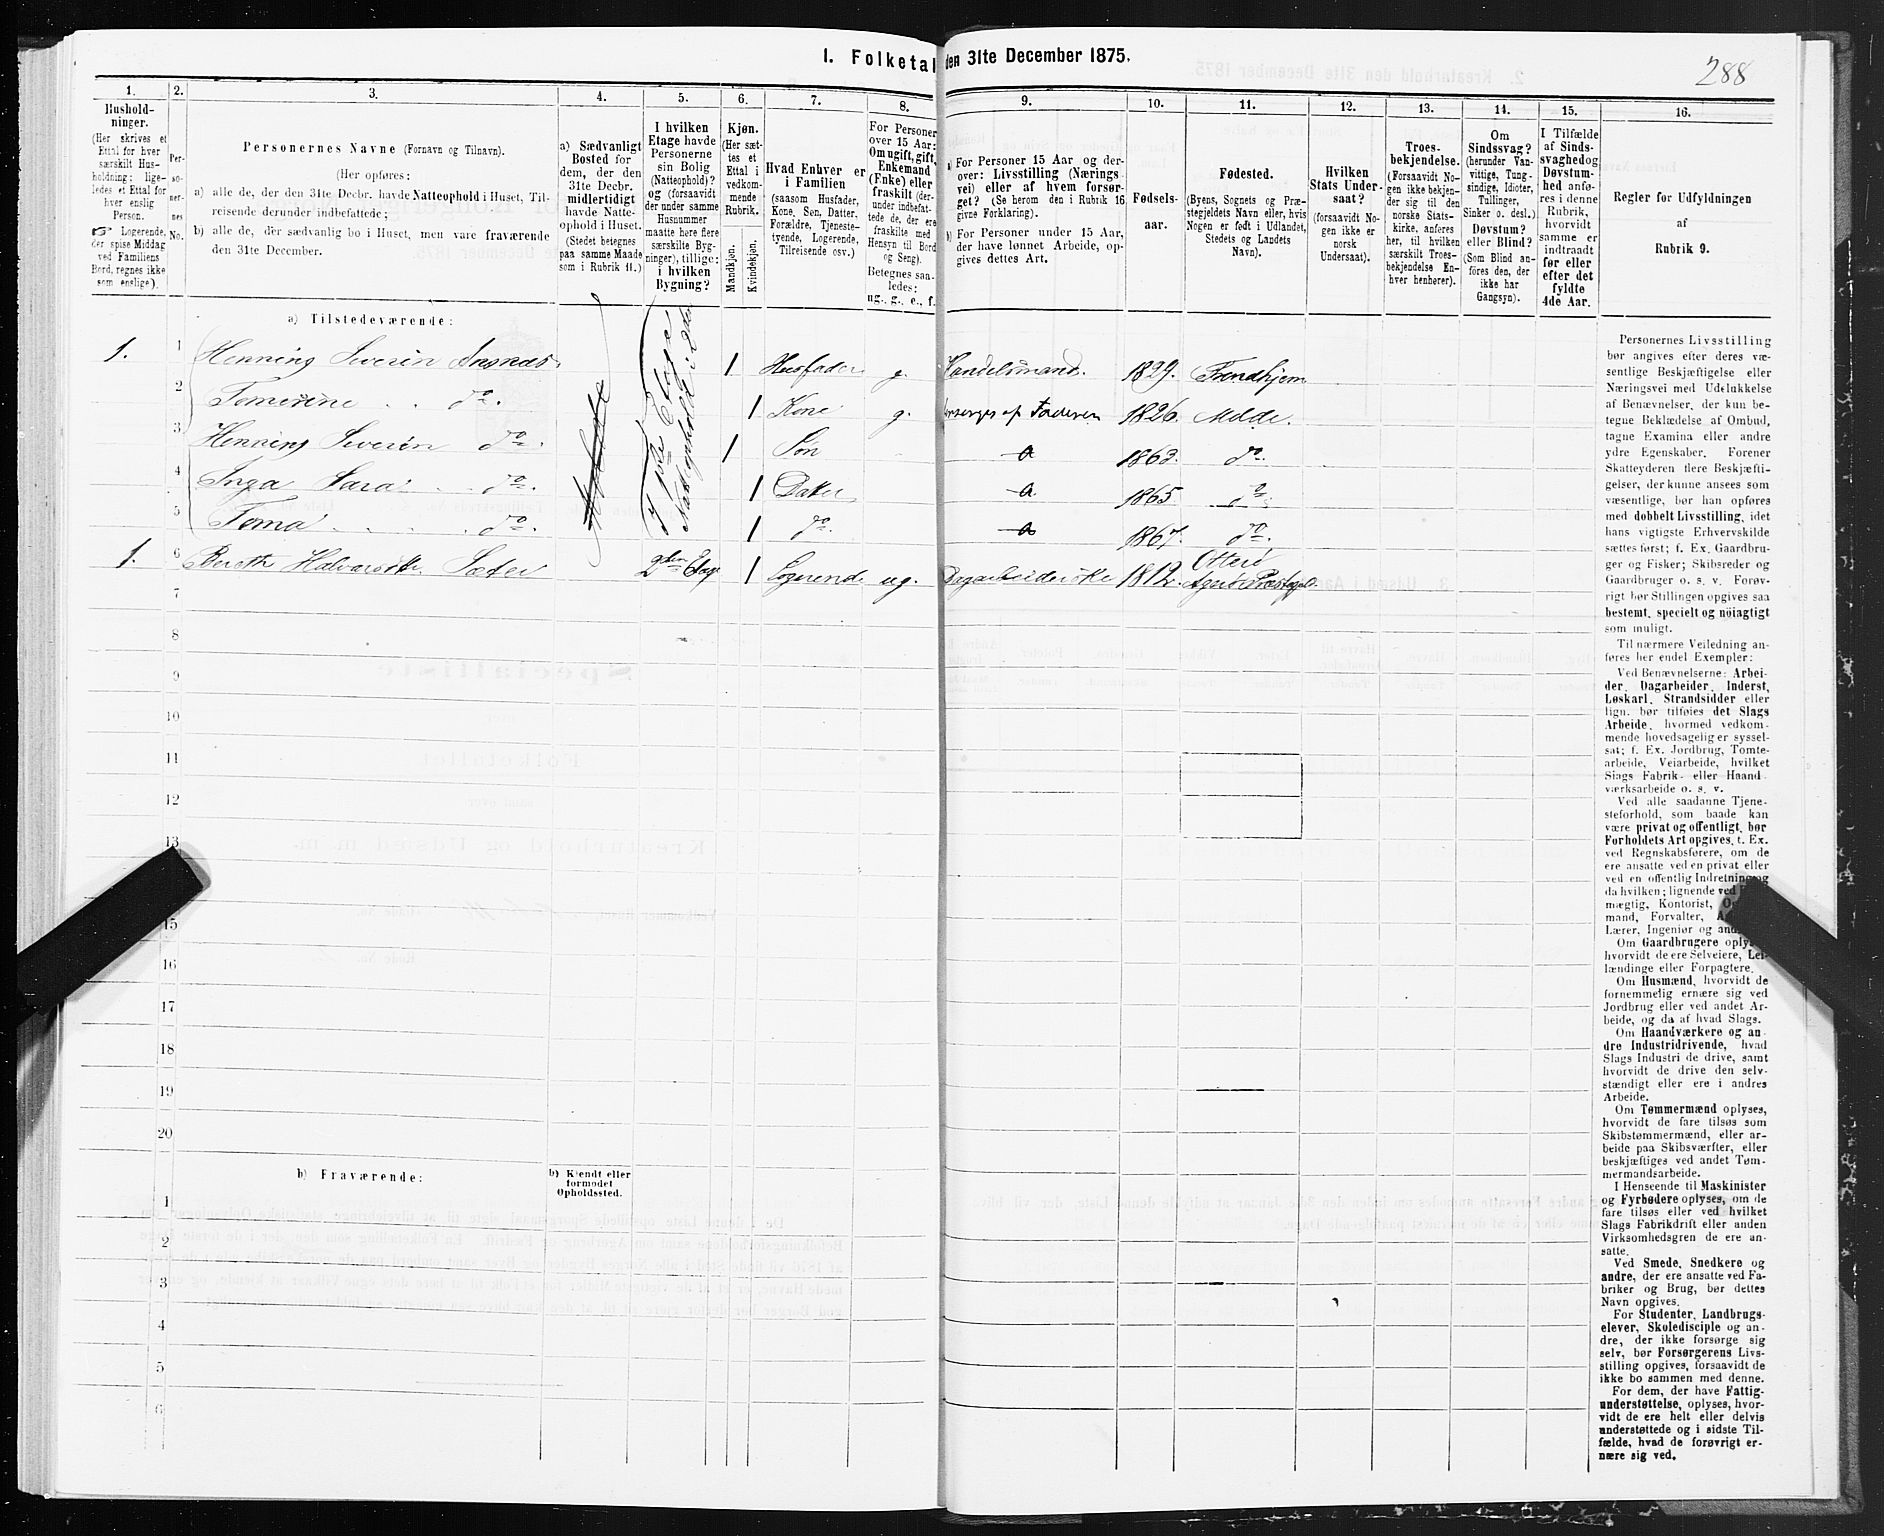 1. Folketal
den 31te December 1875.
288
1.
Hushold-
ninger.
(Her skrives et
Ettal for hver
særskilt Hus-
holdning; lige-
ledes et Ettal for
hver enslig
Person.
☞ Logerende,
der spise Middag
ved Familiens
Bord, regnes ikke
som enslige).
2.
Per-
so-
ner-
nes
No.
3.
Personernes Navne (Fornavn og Tilnavn).
(Her opføres:
a) alle de, der den 31te Decbr. havde Natteophold i Huset, Til-
reisende derunder indbefattede;
b) alle de, der sædvanlig bo i Huset, men vare fraværende
den 31te December.
4.
a) Sædvanligt
Bosted for
dem, der den
31te Decbr.
midlertidigt
havde Natte-
ophold i Huset.
(Stedet betegnes
paa samme Maade
som i Rubrik 11.)
5.
I hvilken
Etage havde
Personerne
sin Bolig
(Natteophold)?
og (forsaavidt
der under samme
Husnummer
maatte høre flere
særskilte Byg-
ninger), tillige:
i hvilken
Bygning?
6.
Kjøn.
(Her sæt-
tes et
Ettal i
vedkom-
mende
Rubrik.
Mandkjøn.
Kvindekjøn.
7.
Hvad Enhver er
i Familien
(saasom Husfader,
Kone, Søn, Datter,
Forældre, Tjeneste-
tyende, Logerende,
Tilreisende osv.)
8.
For Personer
over 15 Aar:
Om ugift, gift,
Enkemand
(Enke) eller
fraskilt (der-
under indbefat-
tede de, der ere
fraskilte med
Hensyn til Bord
og Seng).
Betegnes saa-
ledes:
ug., g., e., f.
9.
a) For Personer 15 Aar og der-
over: Livsstilling (Nærings-
vei) eller af hvem forsør-
get? (Se herom den i Rubrik 16
givne Forklaring).
b) For Personer under 15 Aar,
der have lønnet Arbeide, op-
gives dettes Art.
10.
Fødsels-
aar.
11.
Fødested.
(Byens, Sognets og Præ-
stegjeldets Navn eller, hvis
Nogen er født i Udlandet,
Stedets og Landets
Navn).
12.
Hvilken
Stats Under-
saat?
(forsaavidt No-
gen ikke er
norsk
Undersaat).
13.
Troes-
bekjendelse.
(Forsaavidt No-
gen ikke bekjen-
der sig til den
norske Stats-
kirke, anføres
her, til hvilken
særskilt Troes-
bekjendelse En-
hver henhører).
14.
Om
Sindssvag?
(herunder Van-
vittige, Tung-
sindige, Idioter,
Tullinger,
Sinker o. desl.)
Døvstum?
eller Blind?
(Som Blind an-
føres den, der
ikke har
Gangsyn).
15.
I Tilfælde
af Sinds-
svaghed og
Døvstum-
hed anfø-
res i denne
Rubrik,
hvorvidt
samme er
indtraadt
før eller
efter det
fyldte
4de Aar.
16.
Regler for Udfyldningen
af
Rubrik 9.
a) Tilstedeværende:
1. 1 Henning Severin 1 Husfader g. Handelsmand. 1829. Trondhjem
2 Tomerine do. 1 Kone g. forsørges af Faderen 1826. Molde.
3 Henning Severin do. 1 Søn 1863. do.
4 Inga Sara do. 1 Dater a 1865 do.
5 Toma do. 1 do. a 1867. do.
1. 6 Bereth Halvarsdtr Sæter 2den Etag 1 Logerende ug. Dagarbeiderske 1812. Otterø
7
8
9
10
11
12
13
15
16
17
18
19
20
b) Fraværende:
b) Kjendt eller
formodet
Opholdssted.
1
2
3
4
5
6
Personernes Livsstilling
bør angives efter deres væ-
sentlige Beskjæftigelse eller
Næringsvei med Udelukkelse
af Benævnelser, der kun be-
tegne Beklædelse af Ombud,
tagne Examina eller andre
ydre Egenskaber. Forener
Skatteyderen flere Beskjæfti-
gelser, der kunne ansees som
væsentlige, bør han opføres
med dobbelt Livsstilling, idet
hans vigtigste Erhvervskilde
sættes først; f. Ex. Gaardbru-
ger og Fisker; Skibsreder og
Gaardbruger o. s. v. Forøv-
rigt bør Stillingen opgives saa
bestemt, specielt og nøiagtigt
som muligt.
Til nærmere Veiledning an-
føres her endel Exempler:
Ved Benævnelserne: Arbei-
der, Dagarbeider, Inderst,
Løskarl, Strandsidder eller
lign. bør tilføies det Slags
Arbeide, hvormed vedkom-
mende hovedsagelig er syssel-
sat; f. Ex. Jordbrug, Tomte-
arbeide, Veiarbeide, hvilket
Slags Fabrik- eller Haand-
værksarbeide o. s. v.
Ved alle saadanne Tjene-
steforhold, som baade kan
være privat og offentligt, bør
Forholdets Art opgives, t. Ex.
ved Regnskabsførere, om de
ere ansatte ved en privat eller
ved en offentlig Indretning og
da hvilken; lignende ved
mægtig, Kontorist,
mand, Forvalter,
Lærer, Ingeniør og
Om Gaardbrugere oplys
hvorvidt de ere Selveiere, Lei-
lændinge eller Forpagtere.
Om Husmænd, hvorvidt de
fornemmelig ernære sig ved
Jordbrug eller ved andet Ar-
beide, og da af hvad Slags.
Om Haandværkere og an-
dre Industridrivende, hvad
Slags Industri de drive, samt
hvorvidt de drive den selv-
stændigt eller ere i andres
Arbeide.
Om Tømmermænd oplyses,
hvorvidt de fare tilsøs som
Skibstømmermænd, eller ar-
beide paa Skibsværfter, eller
beskjæftiges ved andet Tøm-
mermandsarbeide.
I Henseende til Maskinister
og Fyrbødere oplyses, om de
fare tilsøs eller ved hvilket
Slags Fabrikdrift eller anden
Virksomhedsgren de ere an-
satte.
Ved Smede, Snedkere og
andre, der ere ansatte ved Fa-
briker og Brug, bør dettes
Navn opgives.
For Studenter, Landbrugs-
elever, Skoledisciple og an-
dre, der ikke forsørge sig
selv, bør Forsørgerens Livs-
stilling opgives, forsaavidt de
ikke bo sammen med denne.
For dem, der have Fattig-
understøttelse, oplyses, hvor-
vidt de ere helt eller delvis
understøttede og i sidste Til-
fælde, hvad de forøvrigt er-
nære sig ved.